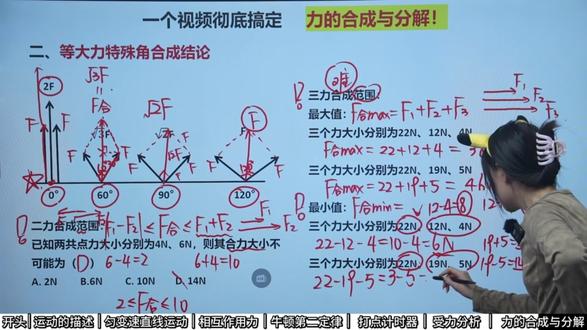 一个视频彻底搞定 力的合成与分解!
二、等大力特殊角合成结论
√3F
2F
F合
√2F
F
0° 60° 90° 120°
二力合成范围 |F₁-F₂|≤F合≤F₁+F₂
已知两共点力大小分别为4N、6N，则其合力大小不
可能为（D） 6-4=2 6+4=10
A. 2N B.6N C. 10N D. 14N
2≤F合≤10
难
三力合成范围
F₁
F₂
F₃
最大值: F合max=F₁+F₂+F₃
三个力大小分别为22N、12N、4N
F合max=22+12+4=
三个力大小分别为22N、19N、5N
F合max=22+19+5=
最小值: F合min=
12-4=8
三个力大小分别为22N、12N、4N
22-12-4=10-4=6N
19+5=
三个力大小分别为22N、19N、5N
19-5=14
22-19-5=3-5=
开头|运动的描述|匀变速直线运动|相互作用力|牛顿第二定律|打点计时器|受力分析|力的合成与分解